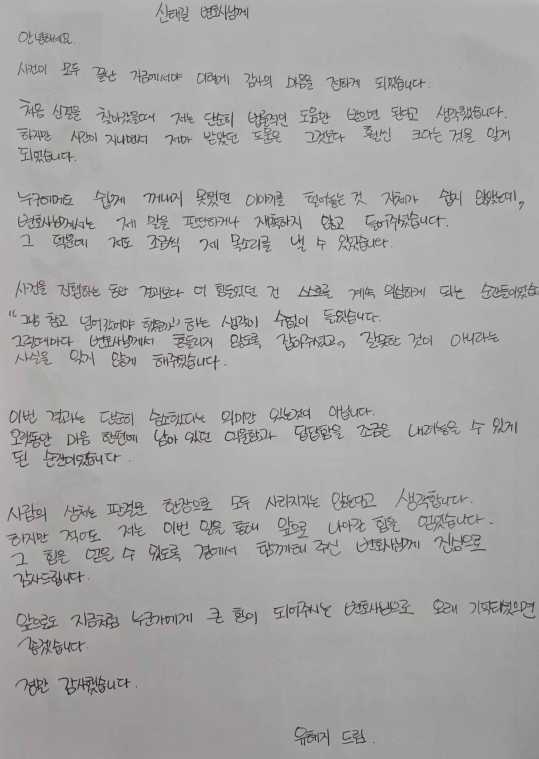 신태길 변호사님께
안녕하세요.
사건이 모두 끝난 지금에서야 이렇게 감사의 마음을 전하게 되었습니다.
처음 상담을 찾아갔을때 저는 단순히 법률적인 도움만 받으면 된다고 생각했습니다.
하지만 시간이 지나면서 제가 받았던 도움은 그것보다 훨씬 크다는 것을 알게
되었습니다.
누구에게도 쉽게 꺼내지 못했던 이야기를 털어놓는 것 자체가 쉽지 않았는데,
변호사님께서는 제 말을 판단하거나 재촉하지 않고 들어주셨습니다.
그 덕분에 저도 조금씩 제 목소리를 낼 수 있었습니다.
사건을 진행하는 동안 결과보다 더 힘들었던 건 스스로를 계속 의심하게 되는 순간들이었습니
"그냥 참고 넘어갔어야 했을까" 하는 생각이 수없이 들었습니다.
그럴때마다 변호사님께서 흔들리지 않도록 잡아주셨고, 잘못한 것이 아니라는
사실을 잊지 않게 해주셨습니다.
이번 결과는 단순히 승소했다는 의미만 있는것이 아닙니다.
오랫동안 마음 한편에 남아 있던 억울함과 답답함을 조금은 내려놓을 수 있게
된 순간이었습니다.
사람의 상처는 판결문 한장으로 모두 사라지지는 않는다고 생각합니다.
하지만 적어도 저는 이번 일을 통해 앞으로 나아갈 힘을 얻었습니다.
그 힘을 얻을 수 있도록 곁에서 함께해 주신 변호사님께 진심으로
감사드립니다.
앞으로도 지금처럼 누군가에게 큰 힘이 되어주시는 변호사님으로 오래 기억되셨으면
좋겠습니다.
정말 감사했습니다.
유혜지 드림.